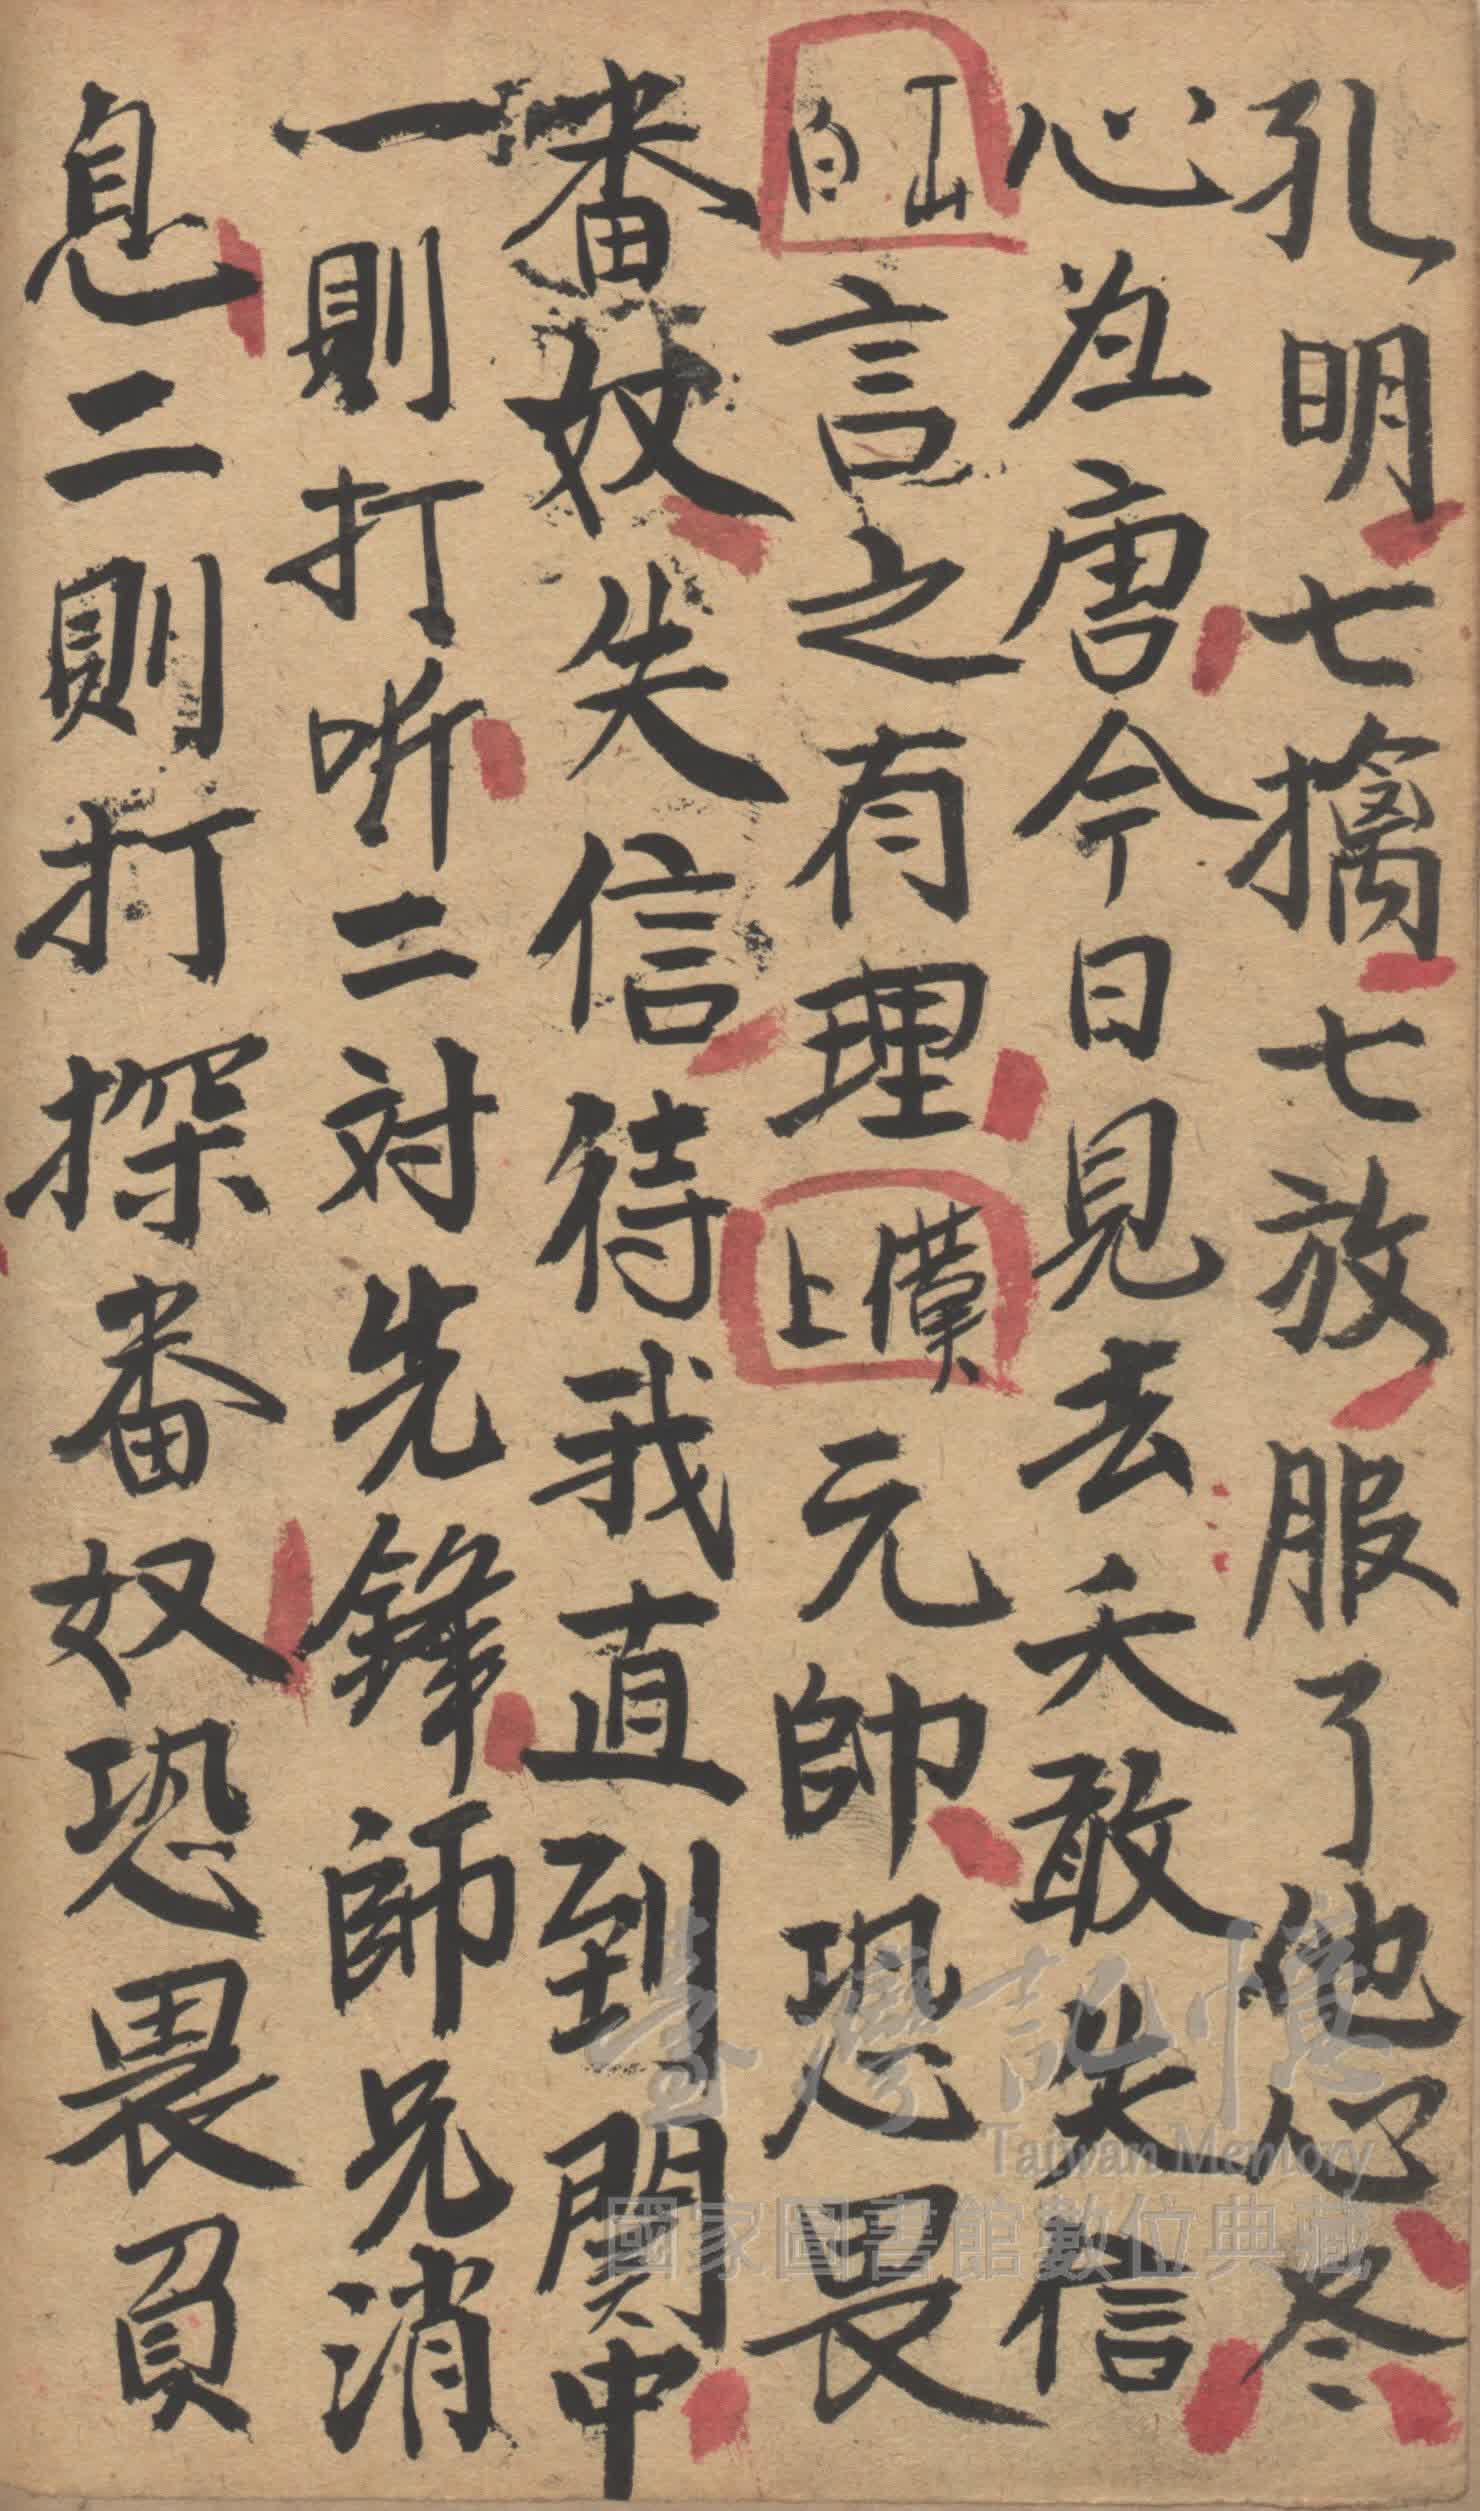 孔明七擒七放服了他心尽
心为唐今日見去夭敢失信
山白言之有理
上元帥恐畏
番奴失信待我直到関中
一則打听二对先鋒師兄消
息二則打探番奴恐畏負
臺灣記憶
Taiwan Memory
國家圖書館數位典藏